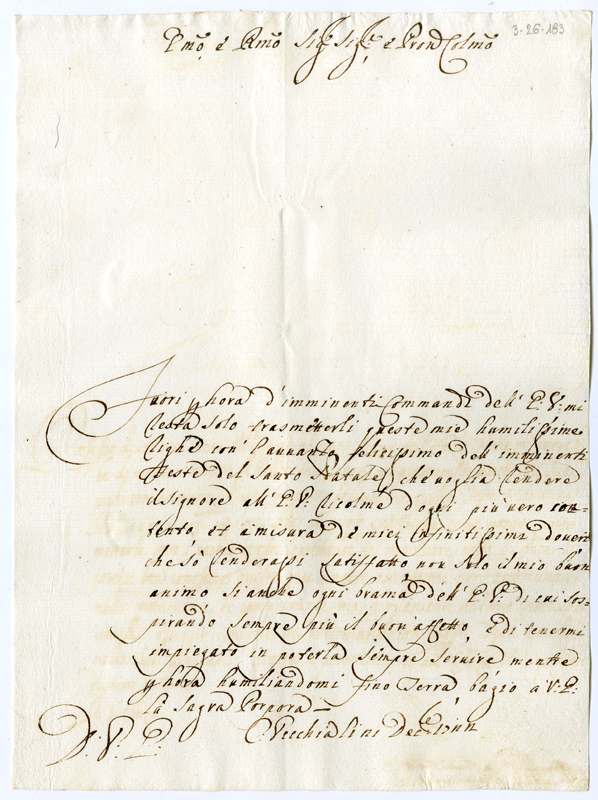 3-26-183
Emo è Rmo Sigr Sigr è Pron Colmo
Fuori p hora d'imminenti Commandi dell' E: V: mi
Resta solo trasmetterli queste mie humilissime
Righe con' l'auuanzo felicissimo dell' imminenti
Feste del Santo Natale, che voglia Rendere
il Signore all' E: V: Ricolme d'ogni più vero con=
tento, et à misura de miei Infinitissimi doveri
che sò Renderassi satisfatto non solo il mio buon
animo si anche ogni brama dell' E: V: di cui sos=
pirando sempre più il buon'affetto, è di tenermi
impiegato in poterla sempre seruire mentre
p hora humiliandomi fino Terra bagio à V: E:
la Sagra Porpora —
D: V: E: